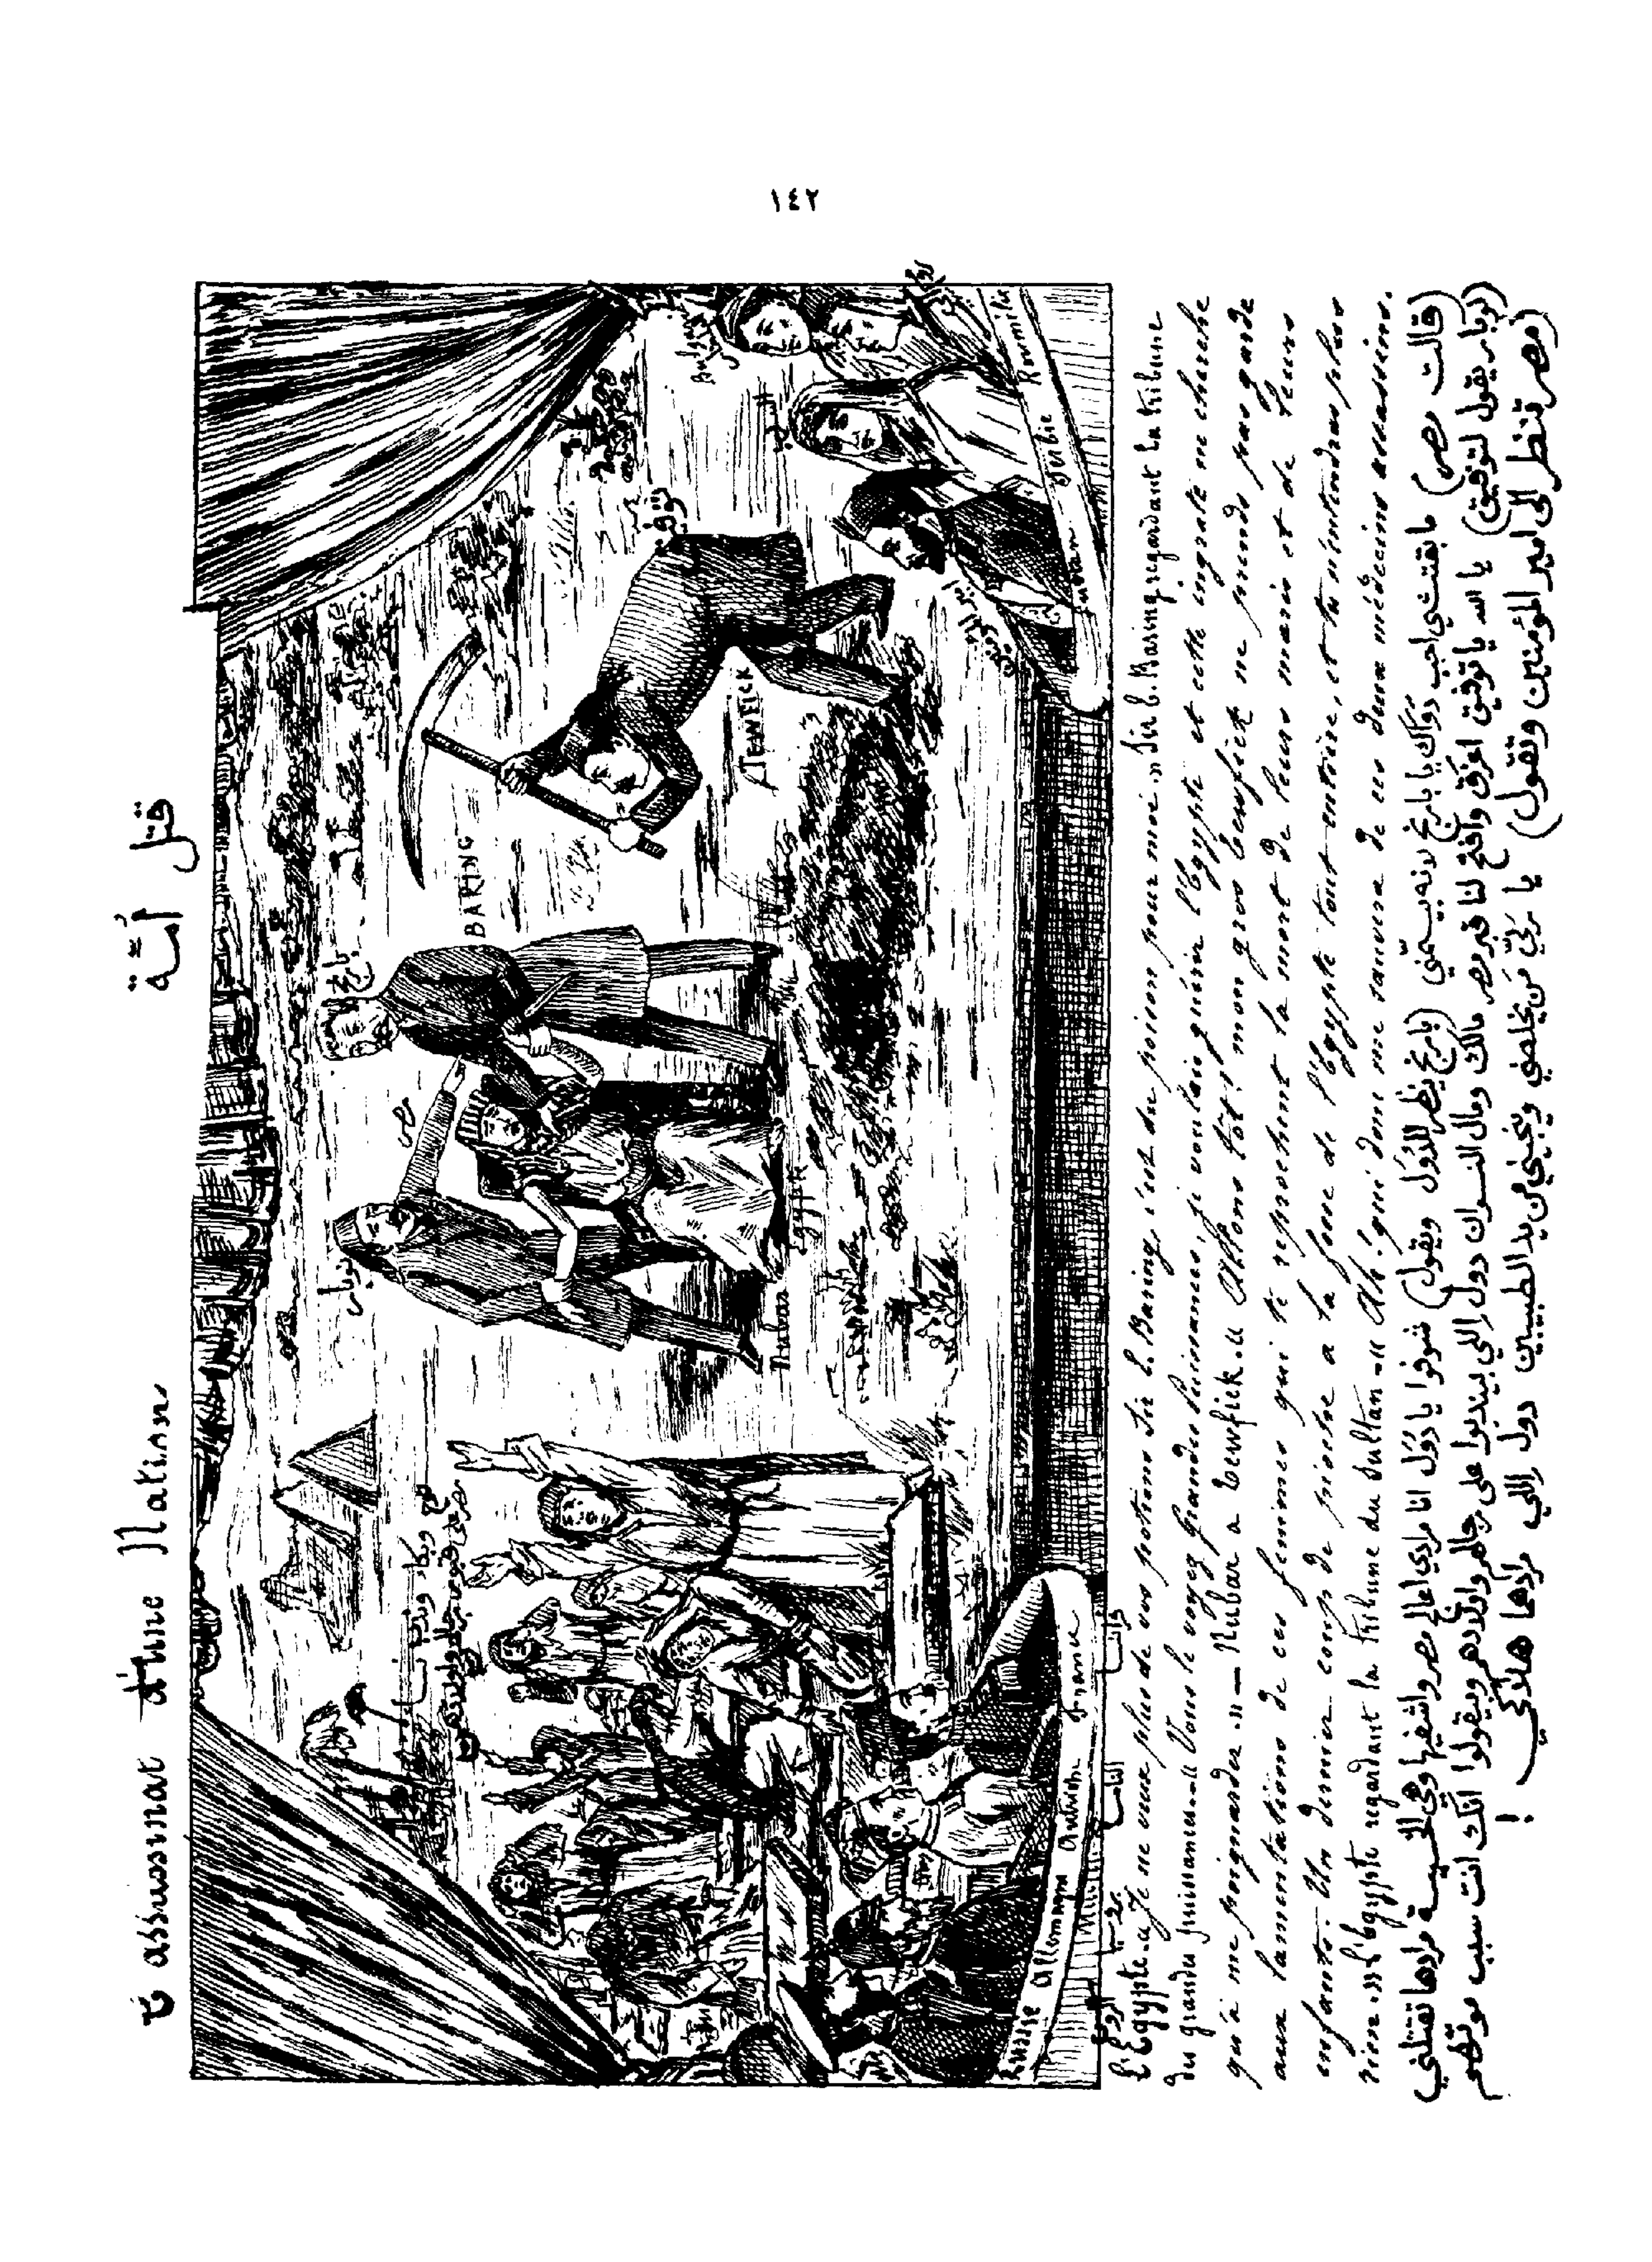 ١٤٢
L'assassinat d'une Nation
قتل أمّة
BARING
بارنج
نوبار
مصر
توفيق
TEWFICK
Nubar
Egypte
Bulgarie
Roumélie
Serbie
Sultan
أمير المؤمنين
Russie Allemagne Autriche France
الروسيا
النامسا
فرانسا
L'Egypte. « Je ne veux plus de vos potions Sir E. Baring, c'est du poison pour moi. » Sir E. Baring regardant la tribune
des grandes puissances. « Vous le voyez grandes puissances, je voulais guérir l'Egypte et cette ingrate ne cherche
qu'à me poignarder » — Nubar à Tewfick. « Allons tôt! mon gros bensfick ne prends pas garde
aux lamentations de ces femmes qui te reprochent la mort de leurs maris et de leurs
enfants. Un dernier coup de pioche à la fosse de l'Egypte tout entière, et tu n'entendras plus
rien. » L'Egypte regardant la tribune du Sultan. « Ah! qui donc me sauvera de ces deux médecins assassins.
(قالت مصر) ما بقتشي احب دواك يا بارنج لانه بيسمّني (بارنج ينظر للدول ويقول) شوفوا يا دول انا مرادي اعالج مصر واشفيها وهي الخسيسة مرادها تقتلني
(نوبار يقول لتوفيق) يا الله يا توفيق اعزق وافتح لنا قبر مصر مالك ومال النسوان دول اللي بيندبوا على رجالهم واولادهم ويقولوا انك انت سبب موتهم
(مصر تنظر الى امير المؤمنين وتقول) يا ربّي من يخلصني وينجيني من يد الطبيبين دول اللي مرادهم هلاكي !